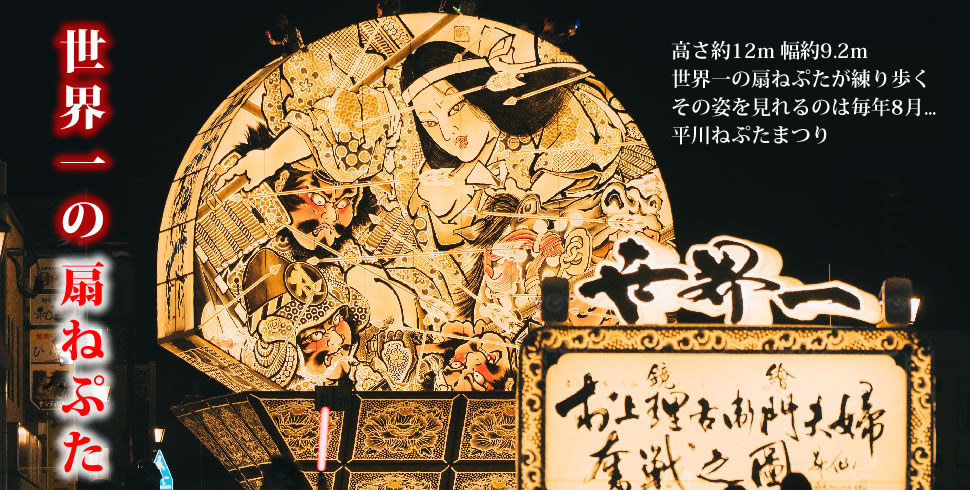 世界一の扇ねぷた
高さ約12m 幅約9.2m
世界一の扇ねぷたが練り歩く
その姿を見れるのは毎年8月...
平川ねぷたまつり
世界一
鏡 絵
村上理右衛門夫婦
奮戦之図